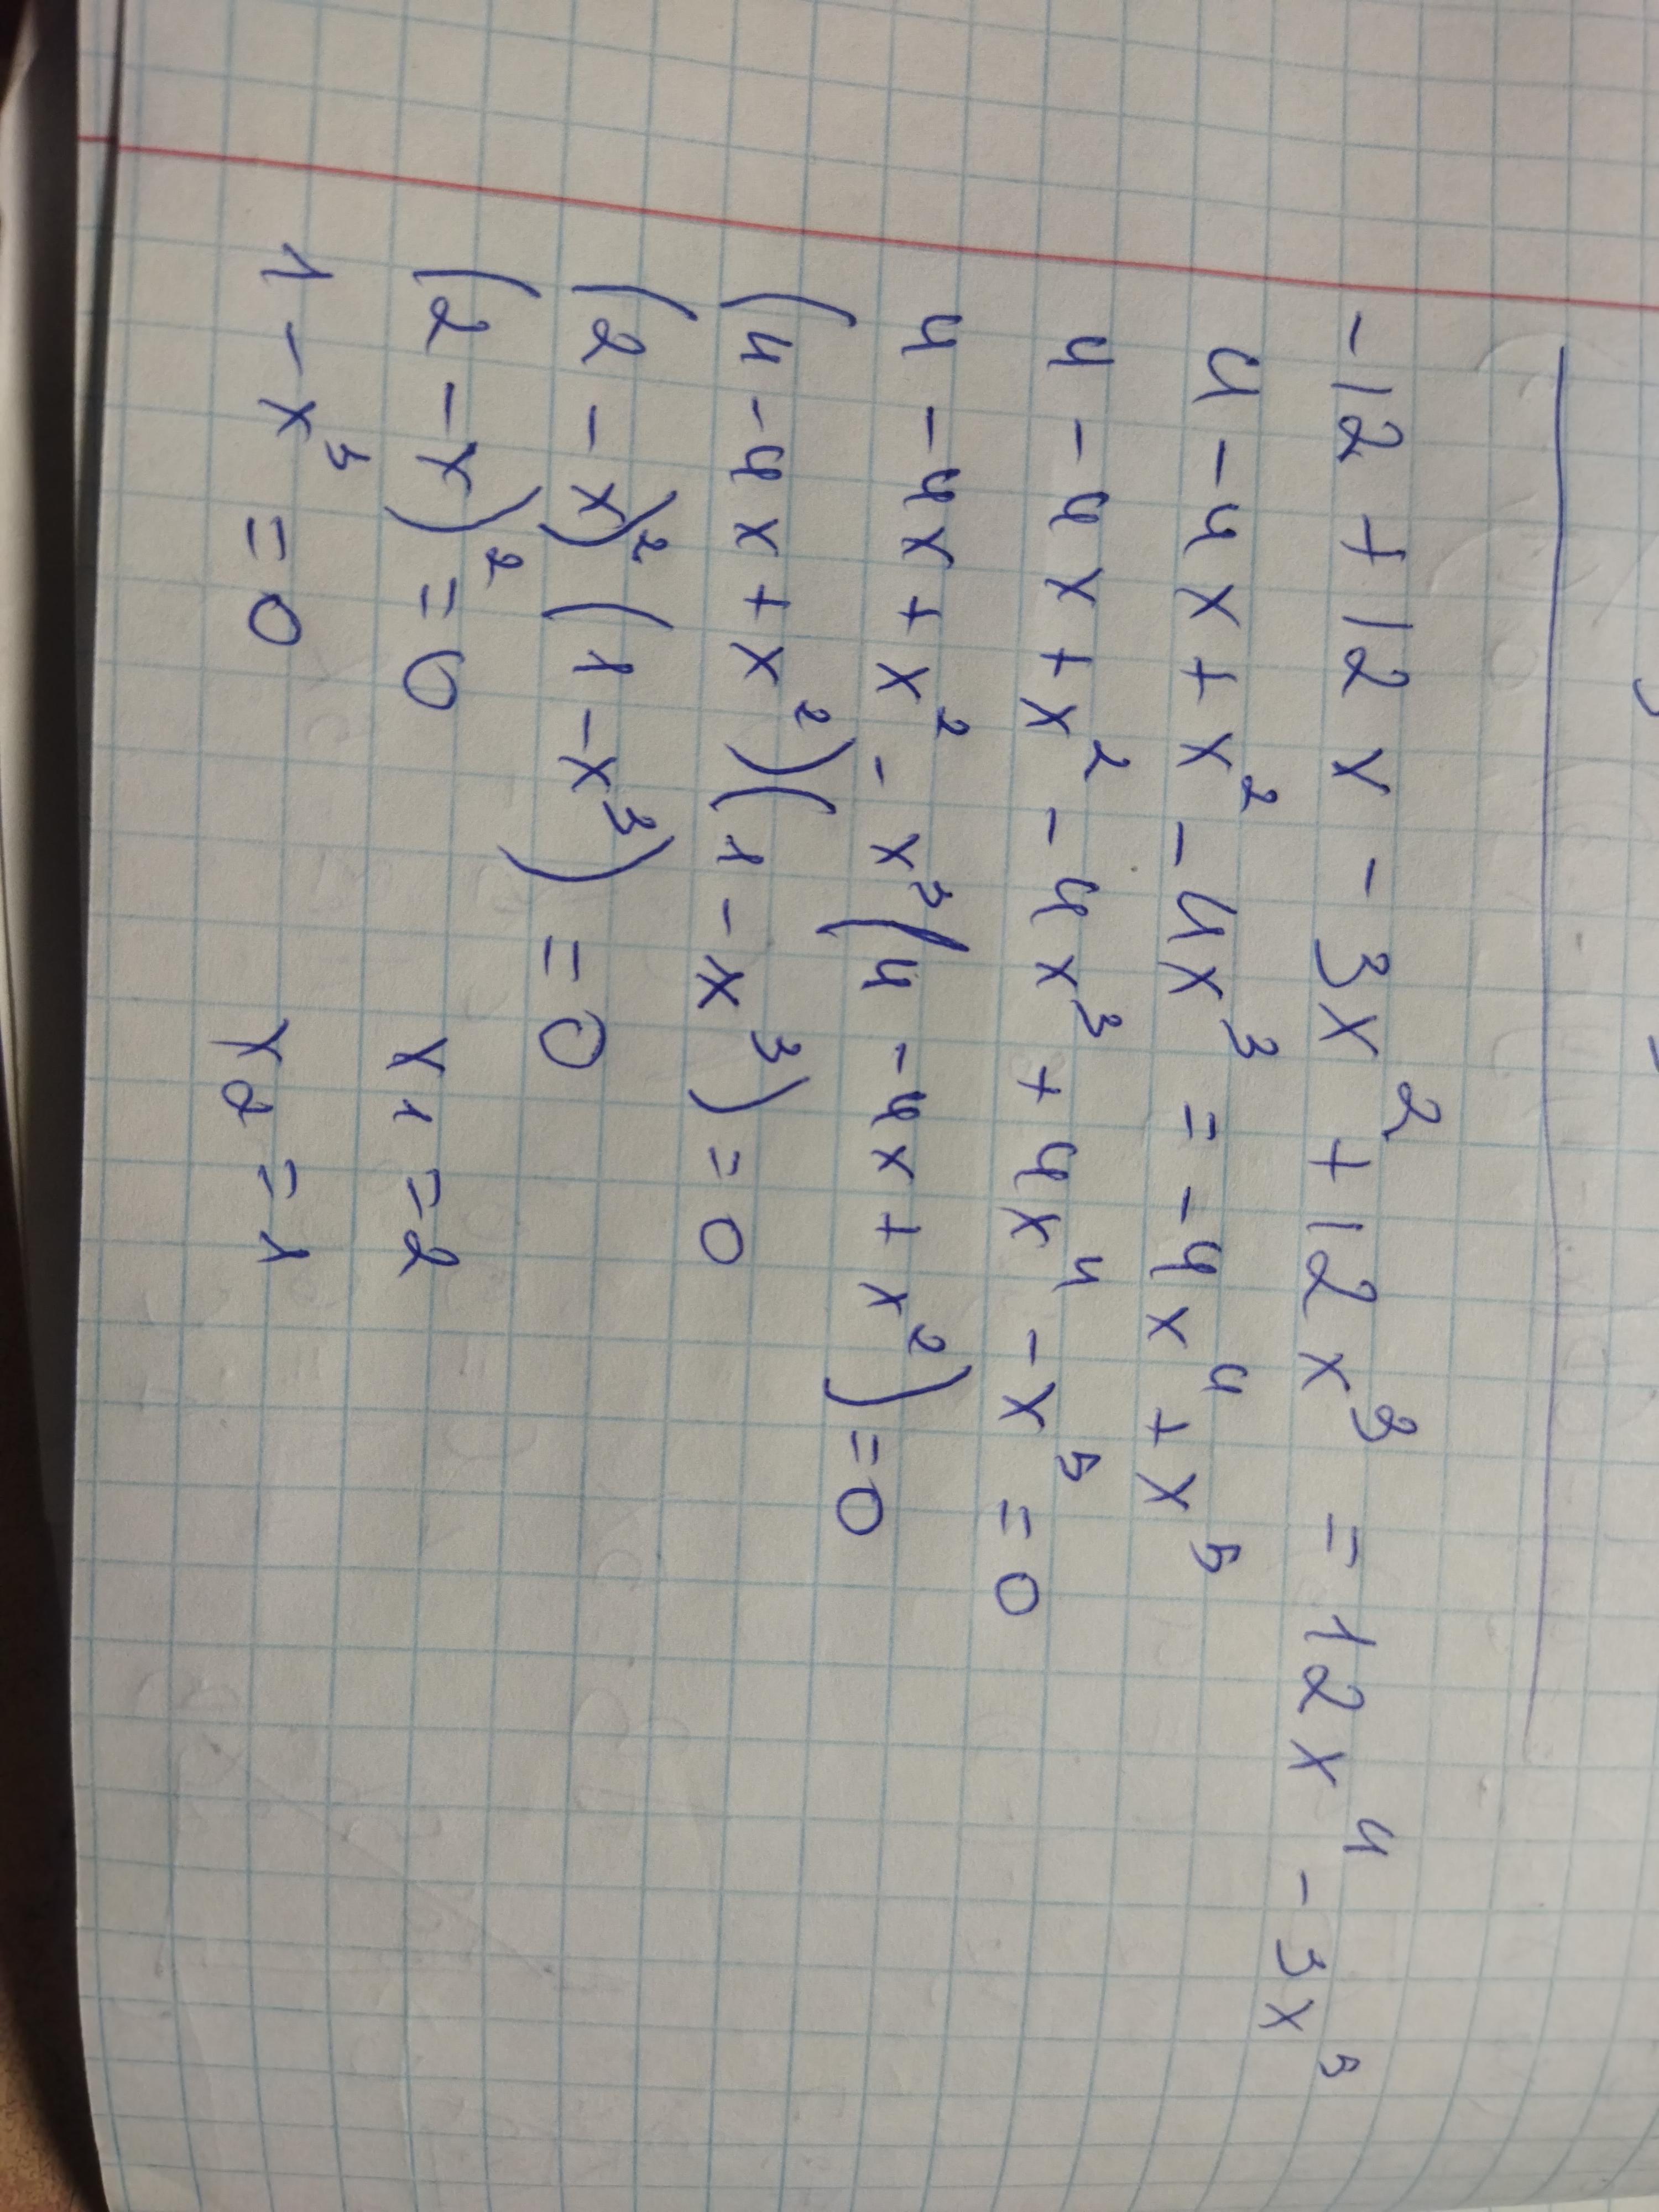 -12 + 12x - 3x² + 12x³ = 12x⁴ - 3x⁵
4 - 4x + x² - 4x³ = -4x⁴ + x⁵
4 - 4x + x² - 4x³ + 4x⁴ - x⁵ = 0
4 - 4x + x² - x³(4 - 4x + x²) = 0
(4 - 4x + x²)(1 - x³) = 0
(2 - x)² (1 - x³) = 0
(2 - x)² = 0 x1 = 2
1 - x³ = 0 x2 = 1